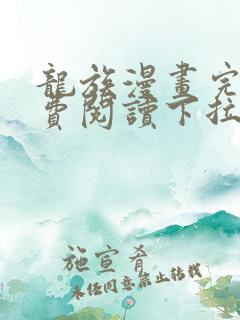 龍族漫畫完
費閱讀下拉
施宣肴
未任同意禁止转载